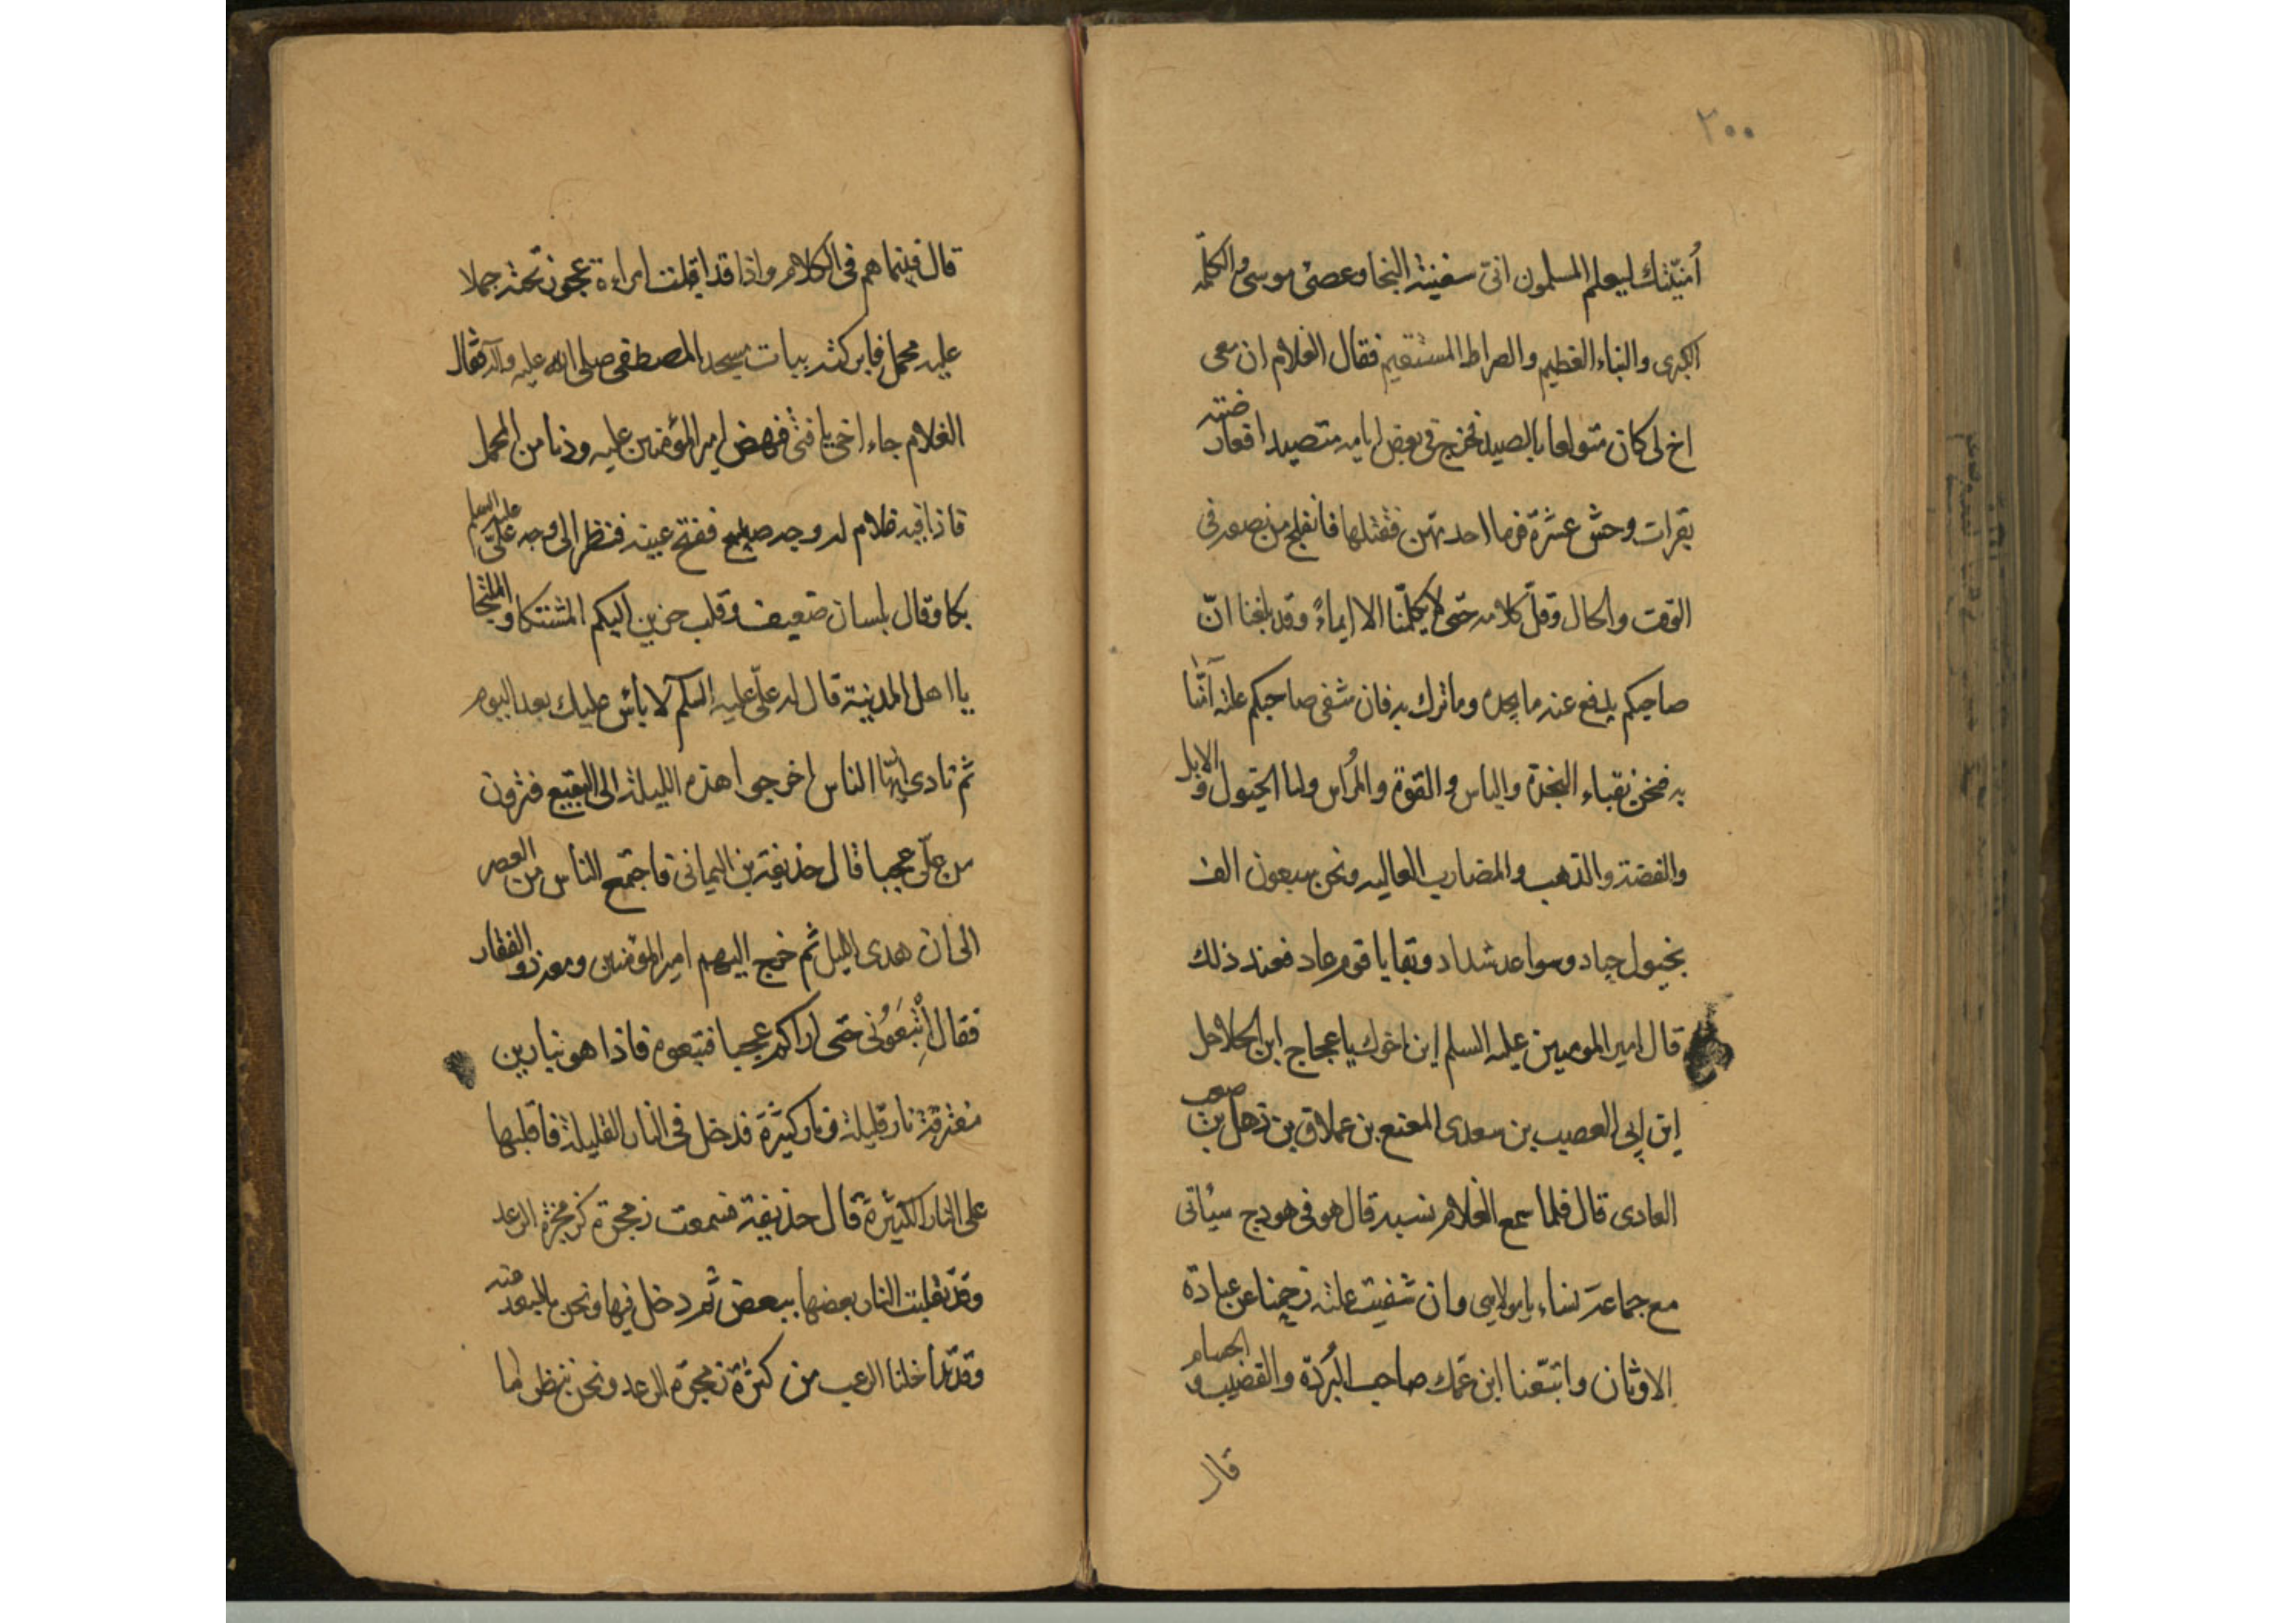 ٢٠٠
أنبّئك ليعلم المسلمون انى سفينة النجا وعصىٰ موسى والكلمة
الكبرى والنباء العظيم والصراط المستقيم فقال الغلام ان معى
اخ لى كان متولعا بالصيد فخرج فى بعض ايامه متصيدا فعارضته
بقرات وحش عشرة فرما احديهن فقتلها فانفلج من نصفه فى
الوقت والحال وقلّ كلامه حتى لا يكلّمنا الا ايماءً وقد بلغنا انّ
صاحبكم يدفع عنه ما يجده وما نزل به فان شفى صاحبكم علته آمنّا
به فنحن بقباء النجدة والباس والقوة والمُراس ولنا الخيول و الابل
والفضة والذهب والمضارب العاليه ونحن سبعون الف
بخيول جياد وسواعد شداد وبقايا قوم عاد فعند ذلك
قال امير المومنين عليه السلم اين اخوك يا عجاج ابن الحلاحل
ابن ابى العصيب بن سعدى المقنع بن عملاق بن ذهل بن صعب
العادى قال فلما سمع الغلام نسبه قال هو فى هودج سئاتى
مع جماعة نساء يا مولاىى وان شفيت علته رجعنا عن عبادة
الاوثان واتبّعنا ابن عمّك صاحب البُردة والقضيب و الحسام
قال
قال فبينما هم فى الكلام واذا قد اقبلت امراءة عجوز تحثه جملا
عليه محمل فابركته بباب مسجد المصطفى صلى الله عليه وآله فقال
الغلام جاء اخى يا فتى فنهض امير المؤمنين عليه ودنا من المحمل
فاذا فيه غلام له وجه صبيح ففتح عينه فنظر الى وجه علىّ عليه السلم
بكا وقال بلسان ضعيف وقلب حزين اليكم المشتكا والملتجا
يا اهل المدينة قال له علىّ عليه السلم لا بأس عليك بعد اليوم
ثم نادى ايّها الناس اخرجوا هذه الليلة الى البقيع فترون
من علىّ عجبا قال حذيفة بن اليمانى فاجتمع الناس من العصر
الى ان هدى الليل ثم خرج اليهم امير المؤمنين ومعه ذو الفقار
فقال اِتْبَعُونى حتى اراكم عجبا فتبعوه فاذا هو بنارين
متفرقة نار قليلة ونار كثيرة فدخل فى النار القليلة فاقلبها
على النار الكثيرة قال حذيفة فسمعت زمجرة كزمجرة الرعد
وقد تقلبت النار بعضها ببعض ثم دخل فيها ونحن بالبعد منه
وقد تداخلنا الرعب من كثرة زمجرة الرعد ونحن ننظر ما